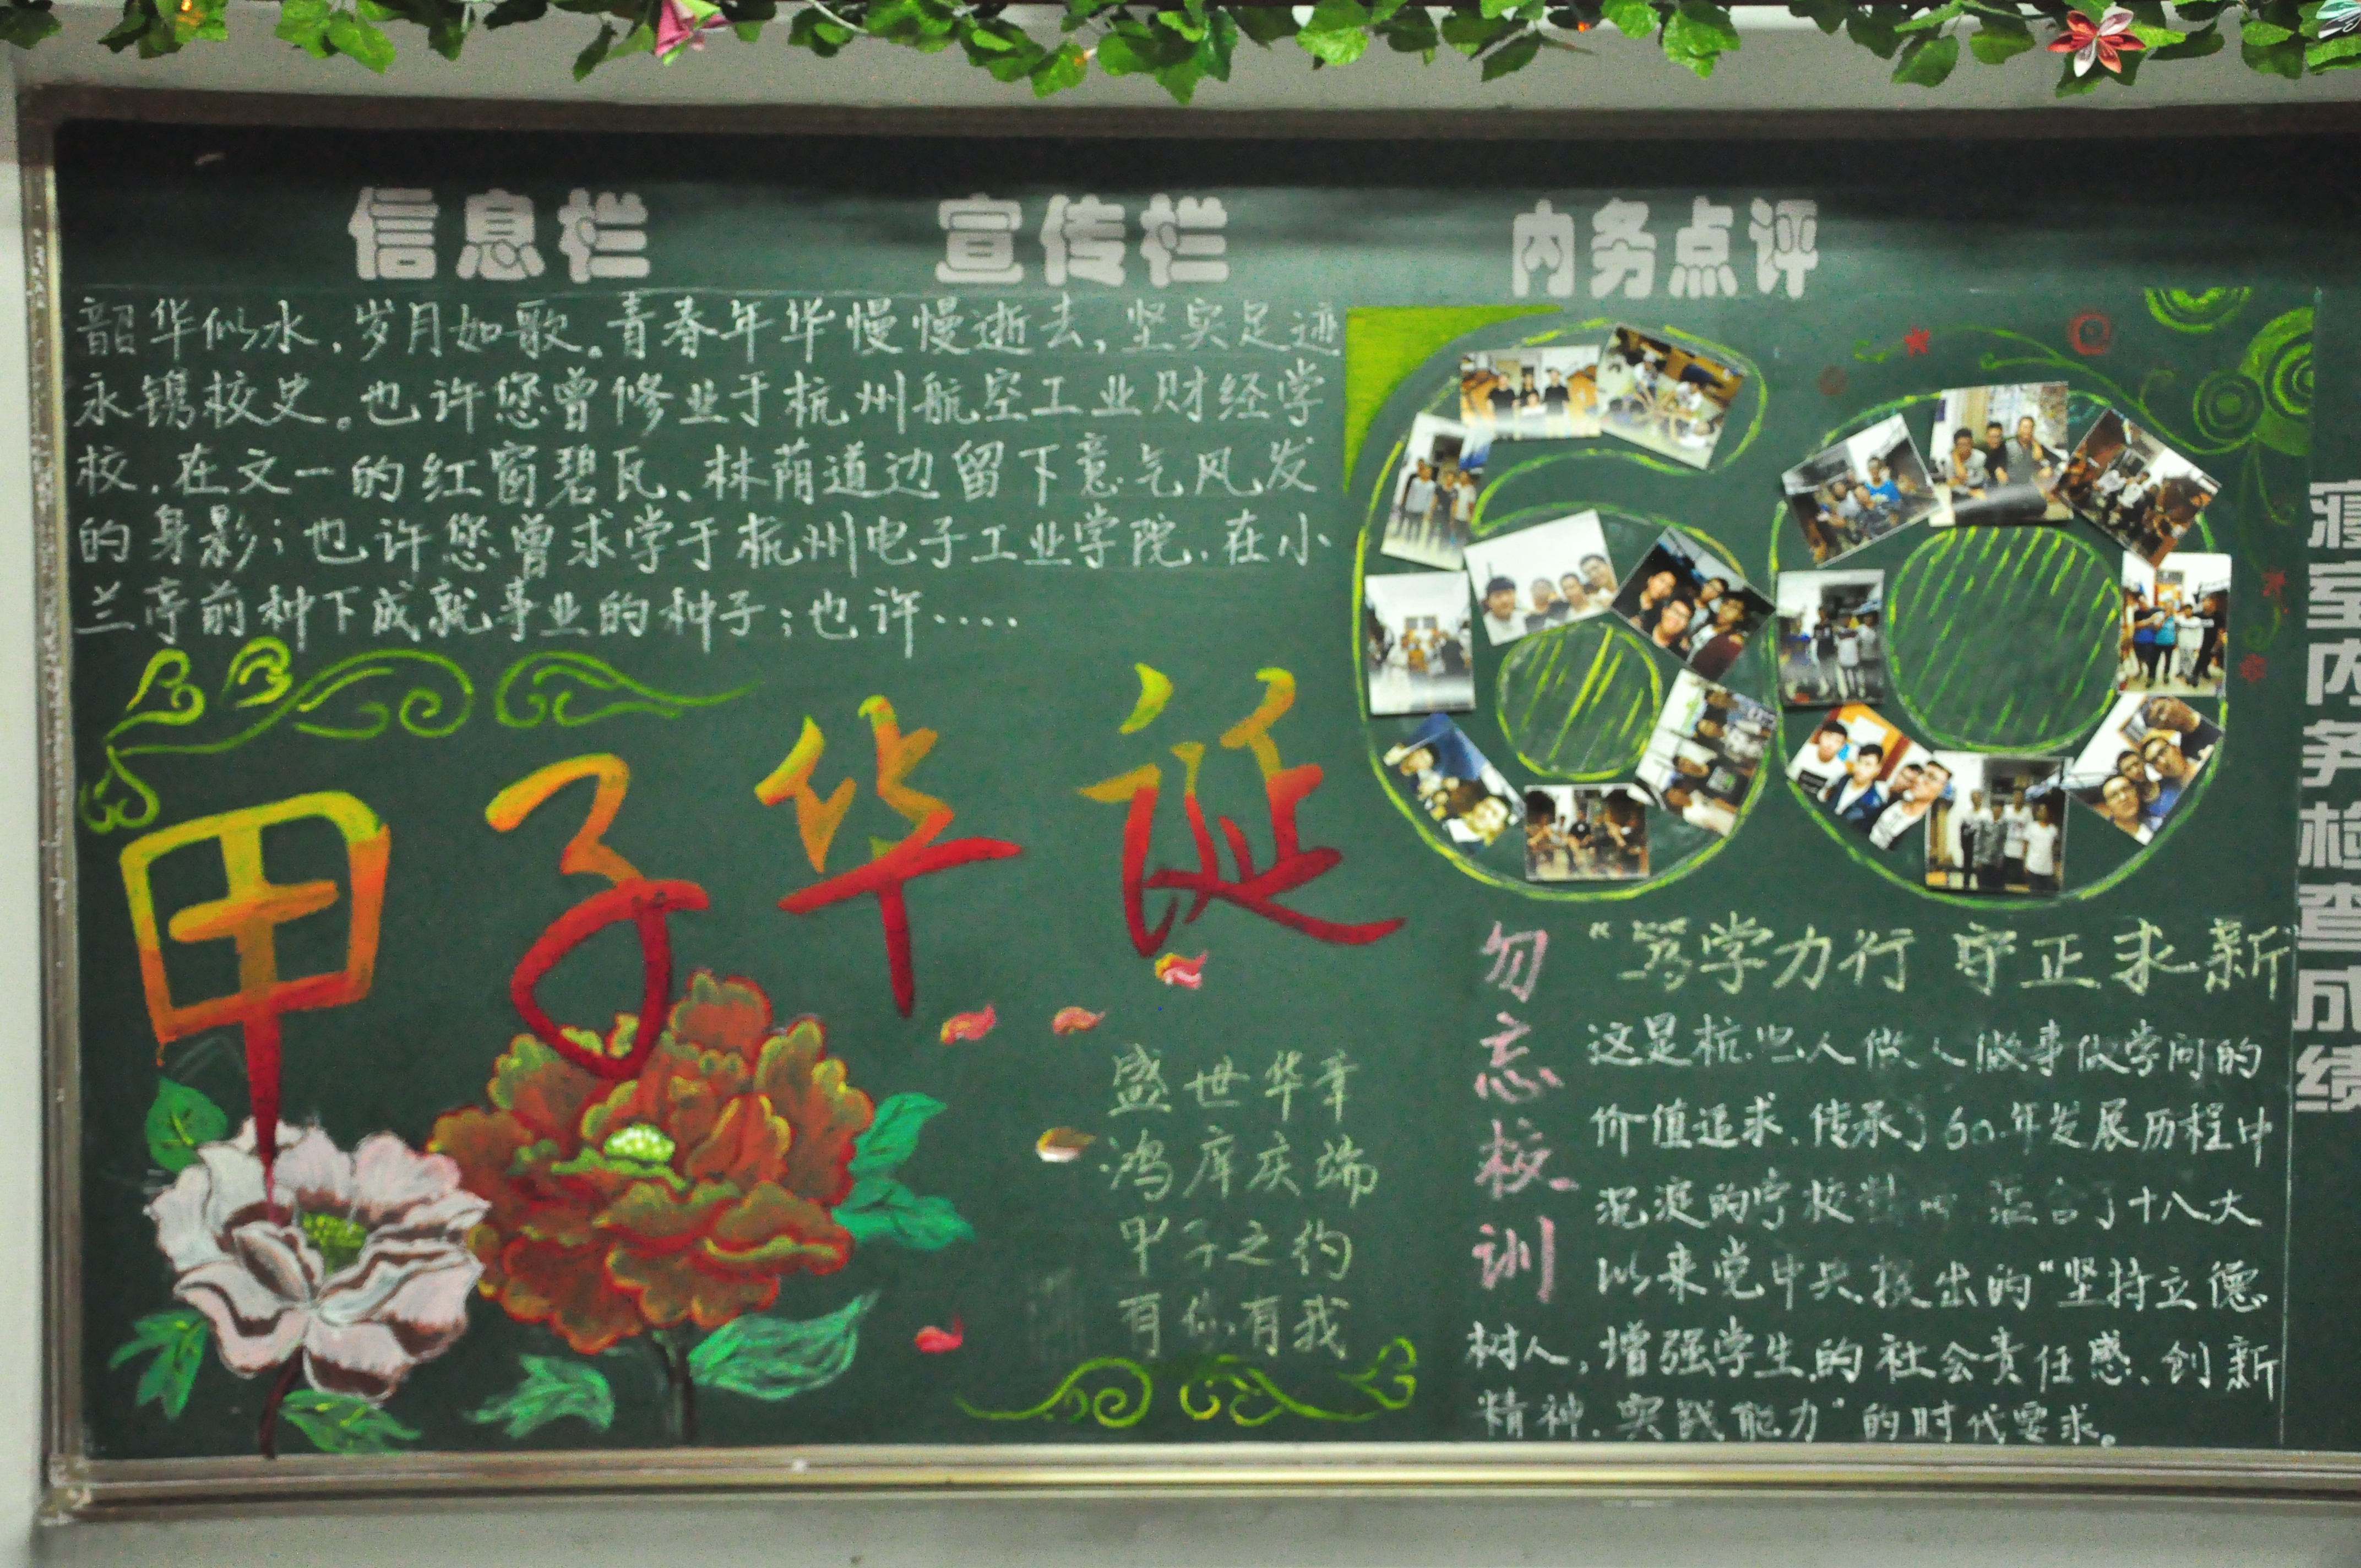 信息栏 宣传栏 内务点评
韶华似水，岁月如歌。青春年华慢慢逝去，坚实足迹
永镌校史。也许您曾修业于杭州航空工业财经学
校，在文一的红窗碧瓦、林荫道边留下意气风发
的身影；也许您曾求学于杭州电子工业学院，在小
兰亭前种下成就事业的种子；也许....
甲子华诞
盛世华章
鸿庠庆端
甲子之约
有你有我
60
勿忘校训
“笃学力行 守正求新
这是杭电人做人做事做学问的
价值追求，传承了60年发展历程中
沉淀的学校精神 蕴含了十八大
以来党中央提出的“坚持立德
树人，增强学生的社会责任感、创新
精神、实践能力”的时代要求。
寝室内务检查成绩